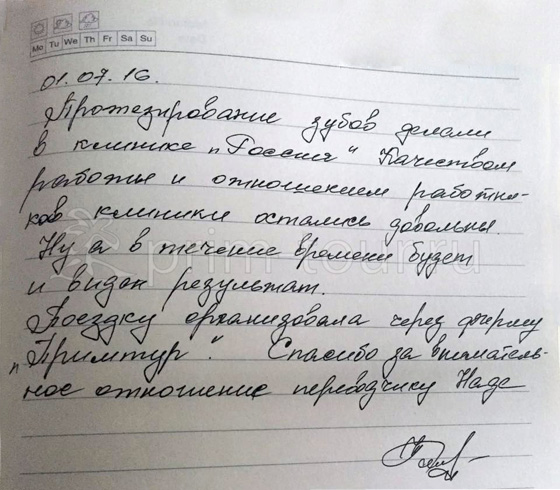 Mo Tu We Th Fr Sa Su
01.07.16.
Протезирование зубов делали
в клинике „Россия“ Качеством
работы и отношением работни-
ков клиники остались довольны.
Ну а в течение времени будет
и виден результат.
Поездку организовала через фирму
„Примтур“. Спасибо за вниматель-
ное отношение переводчику Наде
prim-tour.ru